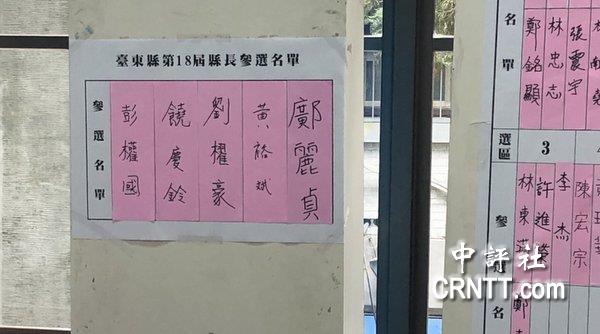 臺東縣第18屆縣長參選名單
參選名單
彭權國
饒慶鈴
劉櫂豪
黃裕斌
鄺麗貞
名單
鄭銘顯
林忠志
張震宇
選區
3
林東
許進
李杰
陳宏宗
中評社
CRNTT.com